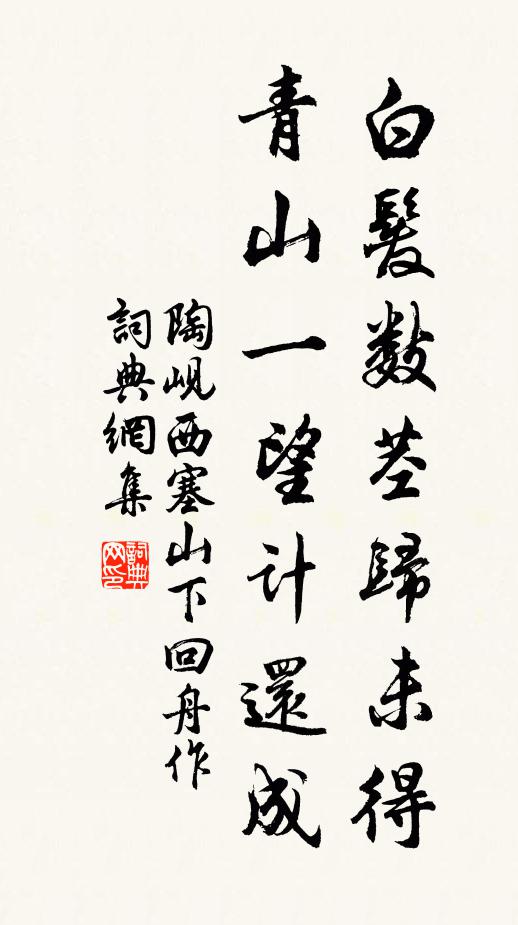 白髮數莖歸未得
青山一望計還成
陶峴西塞山下回舟作
詞典網集
詞典网印